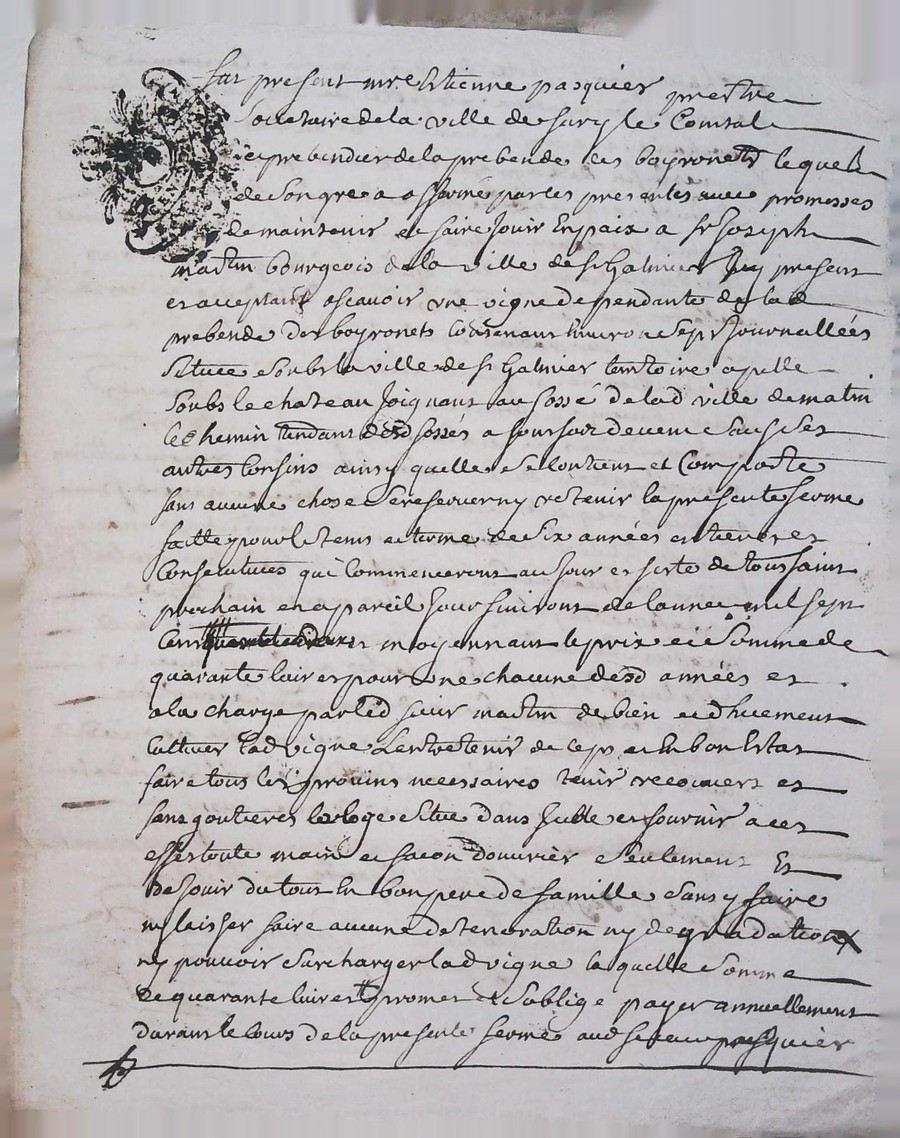 fut present mre Estienne pasquier prestre
Societaire de la ville de Sury le Comtal
et prebendier de la prebende des boyronets lequel
de Son gré a affermé par les presentes avec promesses
de maintenir et faire Jouir En paix a Sr Joseph
martin bourgeois de la ville de St Galmier Icy present
et acceptant ascavoir une vigne dependante de lad
prebende des boyronets Contenant Environ Sept Journallées
Situee Soubs la ville de St Galmier territoire apellé
Soubs le chateau Joignant au fossé de lad ville de matin
le chemin tendant desd fossés a de Sauf Ses
autres Consins ainsy quelle Se Contient et Comporte
sans aucune chose Se reserver ny retenir la presente ferme
faitte pour le tems et terme de Six années entieres et
Consecutives qui Commenceront au Jour et feste de toussaint
prochain et a pareil Jour finiront de lannee mil sept
Cent et moyennant le prix et Somme de
quarante livres pour une chacune desd années et
a la charge par led Sieur martin de bien et dhuement
Cultiver lad vigne Lentretenir de Ceps et En bon Estat
faire tous les provins necessaires tenir recouvert et
sans goutieres la loge Situe dans Icelle et fournir a cet
effet toute main et facon douvrier Seulement Et
de Jouir du tout En bon pere de famille Sans y faire
ny laisser faire aucune deterioration ny degradation
ny pouvoir Surcharger lad vigne laquelle Somme
de quarante livres Il promet et Soblige payer annuellement
durant le Cours de la presente ferme aud Sieur pasquier